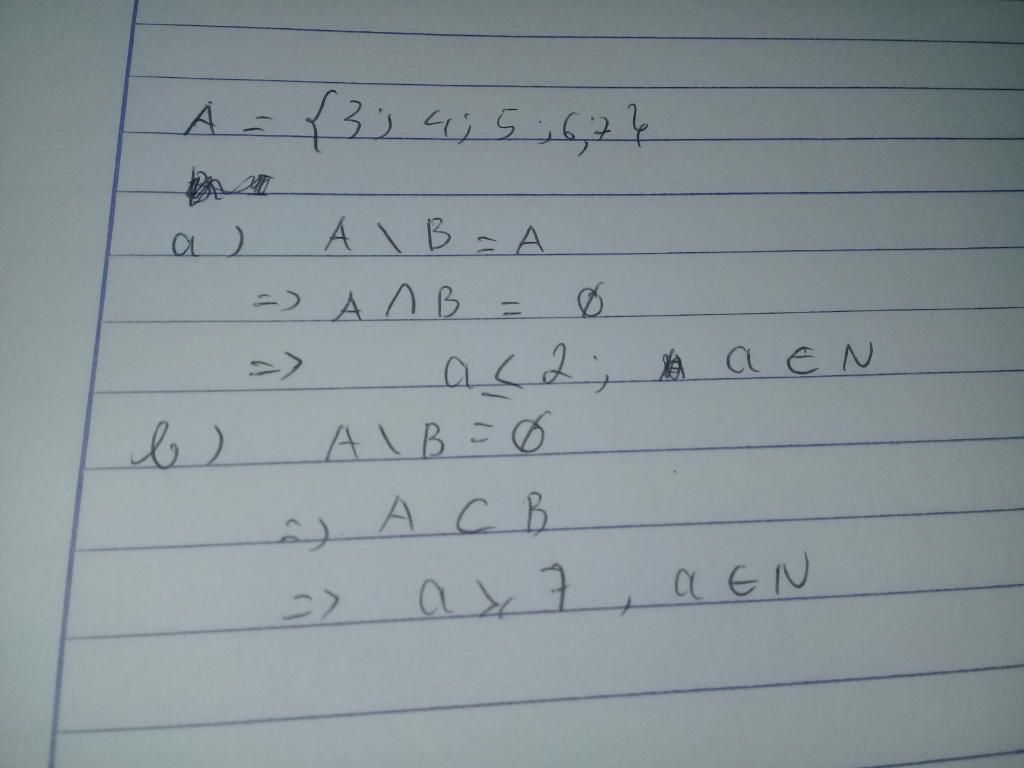 A = {3; 4; 5; 6; 7}
a) A \ B = A
=> A ∩ B = ∅
=> a ≤ 2; a ∈ N
b) A \ B = ∅
=> A ⊂ B
=> a ≥ 7, a ∈ N